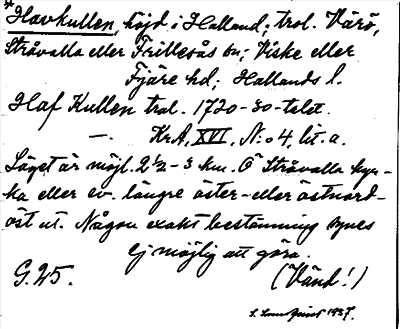 Havkullen, höjd i Halland; trol. Värö,
Stråvalla eller Frillesås sn; Viske eller
Fjäre hd; Hallands l.
Haf Kullen trol. 1720-30-talet
— KrA, XVI, N:o 4, lit. a.
Läget är möjl. 2½-3 km. Ö Stråvalla kyr-
ka eller ev. längre öster- eller ostnord-
öst ut. Någon exakt bestämning synes
ej möjlig att göra.
G. 25. (Vänd!)
1937.